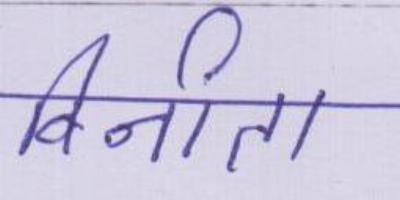 विनीता